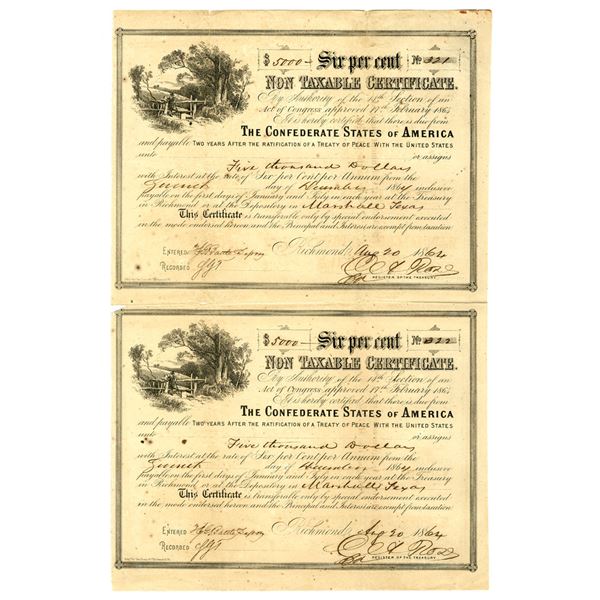 $ 5000— Six per cent No 321
NON TAXABLE CERTIFICATE.
By Authority of the 14th Section of an
Act of Congress approved 17th February 1864
It is hereby certified that there is due from
THE CONFEDERATE STATES OF AMERICA
and payable TWO YEARS AFTER THE RATIFICATION OF A TREATY OF PEACE WITH THE UNITED STATES
unto or assigns
Five thousand Dollars
with Interest at the rate of Six per Cent per Annum from the
day of December 1864 inclusive
payable on the first days of January and July in each year at the Treasury
in Richmond or at the Depository in Marshall Texas
This Certificate is transferable only by special endorsement executed
in the mode endorsed hereon and the Principal and Interest are exempt from taxation
Richmond, Aug 20 1864
ENTERED
RECORDED
REGISTER OF THE TREASURY
$ 5000— Six per cent No 322
NON TAXABLE CERTIFICATE.
By Authority of the 14th Section of an
Act of Congress approved 17th February 1864
It is hereby certified that there is due from
THE CONFEDERATE STATES OF AMERICA
and payable TWO YEARS AFTER THE RATIFICATION OF A TREATY OF PEACE WITH THE UNITED STATES
unto or assigns
Five thousand Dollars
with Interest at the rate of Six per Cent per Annum from the
day of December 1864 inclusive
payable on the first days of January and July in each year at the Treasury
in Richmond or at the Depository in Marshall Texas
This Certificate is transferable only by special endorsement executed
in the mode endorsed hereon and the Principal and Interest are exempt from taxation
Richmond, Aug 20 1864
ENTERED
RECORDED
REGISTER OF THE TREASURY